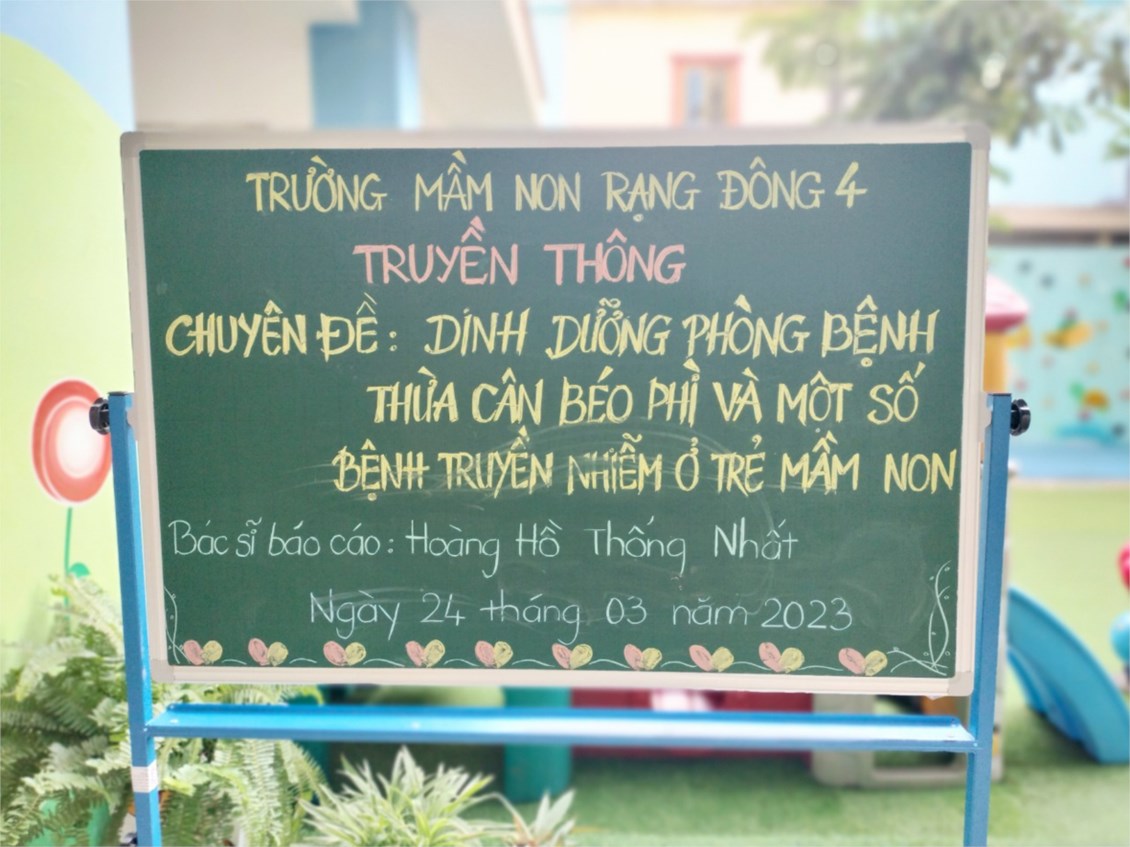 TRƯỜNG MẦM NON RẠNG ĐÔNG 4
TRUYỀN THÔNG
CHUYÊN ĐỀ: DINH DƯỠNG PHÒNG BỆNH
THỪA CÂN BÉO PHÌ VÀ MỘT SỐ
BỆNH TRUYỀN NHIỄM Ở TRẺ MẦM NON
Bác sĩ báo cáo: Hoàng Hồ Thống Nhất
Ngày 24 tháng 03 năm 2023